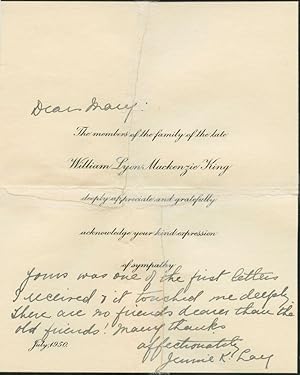 Dear Mary:
The members of the family of the late
William Lyon Mackenzie King
deeply appreciate and gratefully
acknowledge your kind expression
of sympathy
Yours was one of the first letters
I received & it touched me deeply.
There are no friends dearer than the
old friends! Many thanks
July, 1950. affectionately
Jennie K. Lay